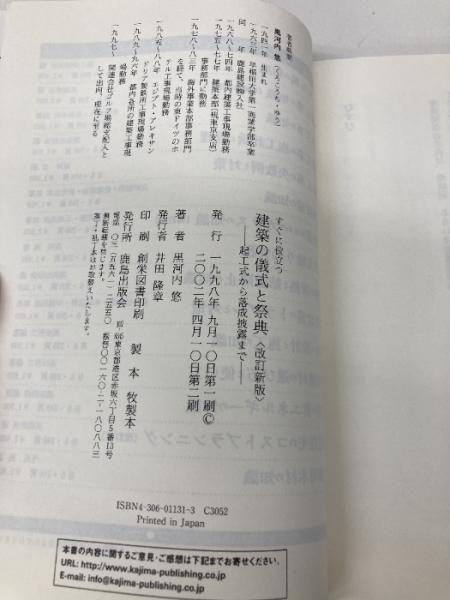 著者略歴
黒河内 悠 (くろこうち・ゆう)
一九四一年 生まれ
一九六三年 早稲田大学第一商業学部卒業
同 年 鹿島建設㈱入社
一九六八〜七四年 都内建築工事現場勤務
一九七五〜七七年 建築本部(現東京支店)
事務部門に勤務
一九七八〜八三年 海外事業本部事務部門
を経て、当時の東ドイツのホ
テル工事現場勤務
一九八五〜八八年 エジプト・アレキサン
ドリア製鉄所工事現場勤務
一九八九〜九六年 都内各所の建築工事現
場勤務
一九九七〜 関連会社ゴルフ場総支配人と
して出向、現在に至る
すぐに役立つ
建築の儀式と祭典〈改訂新版〉
――起工式から落成披露まで――
発行 一九九八年九月一〇日第一刷©
二〇〇二年四月一〇日第二刷
著者 黒河内 悠
発行者 井田隆章
印刷 創栄図書印刷 製本 牧製本
発行所 鹿島出版会
107東京都港区赤坂六丁目5番13号
無断転載を禁じます。
落丁・乱丁本はお取替えいたします。
ISBN4-306-01131-3 C3052
Printed in Japan
本書の内容に関するご意見・ご感想は下記までお寄せください。
URL: http://www.kajima-publishing.co.jp
E-mail: info@kajima-publishing.co.jp